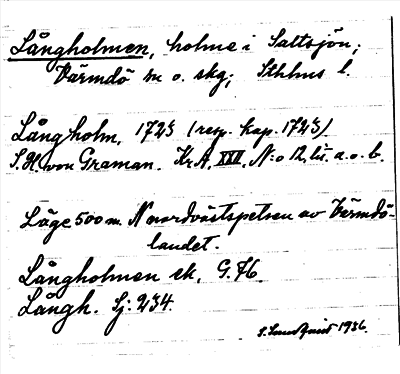 Långholmen, holme i Saltsjön;
Värmdö sn o. skg; Sthlms l.
Långholm, 1723 (resp. kap. 1723)
S. H. von Graman. Kr A, XXI, N:o 12, lit. a. o. b.
Läge 500 m. N nordvästspetsen av Värmdö-
landet.
Långholmen ek. G. 76
Långh. Sj: 234.
1936.